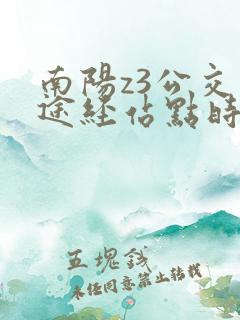 南陽z3公交
途經佔點時
五塊錢
未經同意禁止轉載